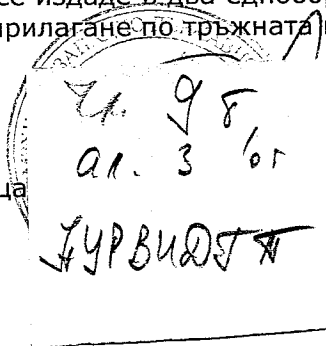 се издаде в два еднообр
прилагане по тръжната
Чл. 9 б
ал. 3 от
ца
НУРВИДГТ